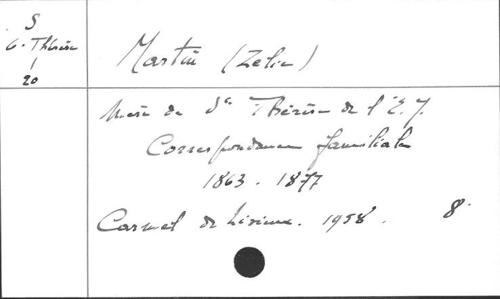 S
C. Thérèse
1
20
Martin (Zélie)
Mère de Ste Thérèse de l'E. J.
Correspondance familiale
1863-1877
Carmel de Lisieux. 1958. 8°